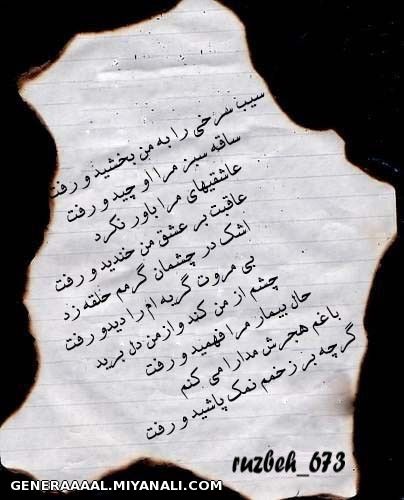 سیب سرخی را به من بخشید و رفت
ساقه سبز مرا او چید و رفت
عاشقیهای مرا باور نکرد
عاقبت بر عشق من خندید و رفت
اشک در چشمان گرمم حلقه زد
بی مروت گریه ام را دید و رفت
چشم از من کند و از من دل برید
حال بیمار مرا فهمید و رفت
با غم هجرش مدارا می کنم
گر چه بر زخمم نمک پاشید و رفت
ruzbeh_673
GENERAAAAL.MIYANALI.COM